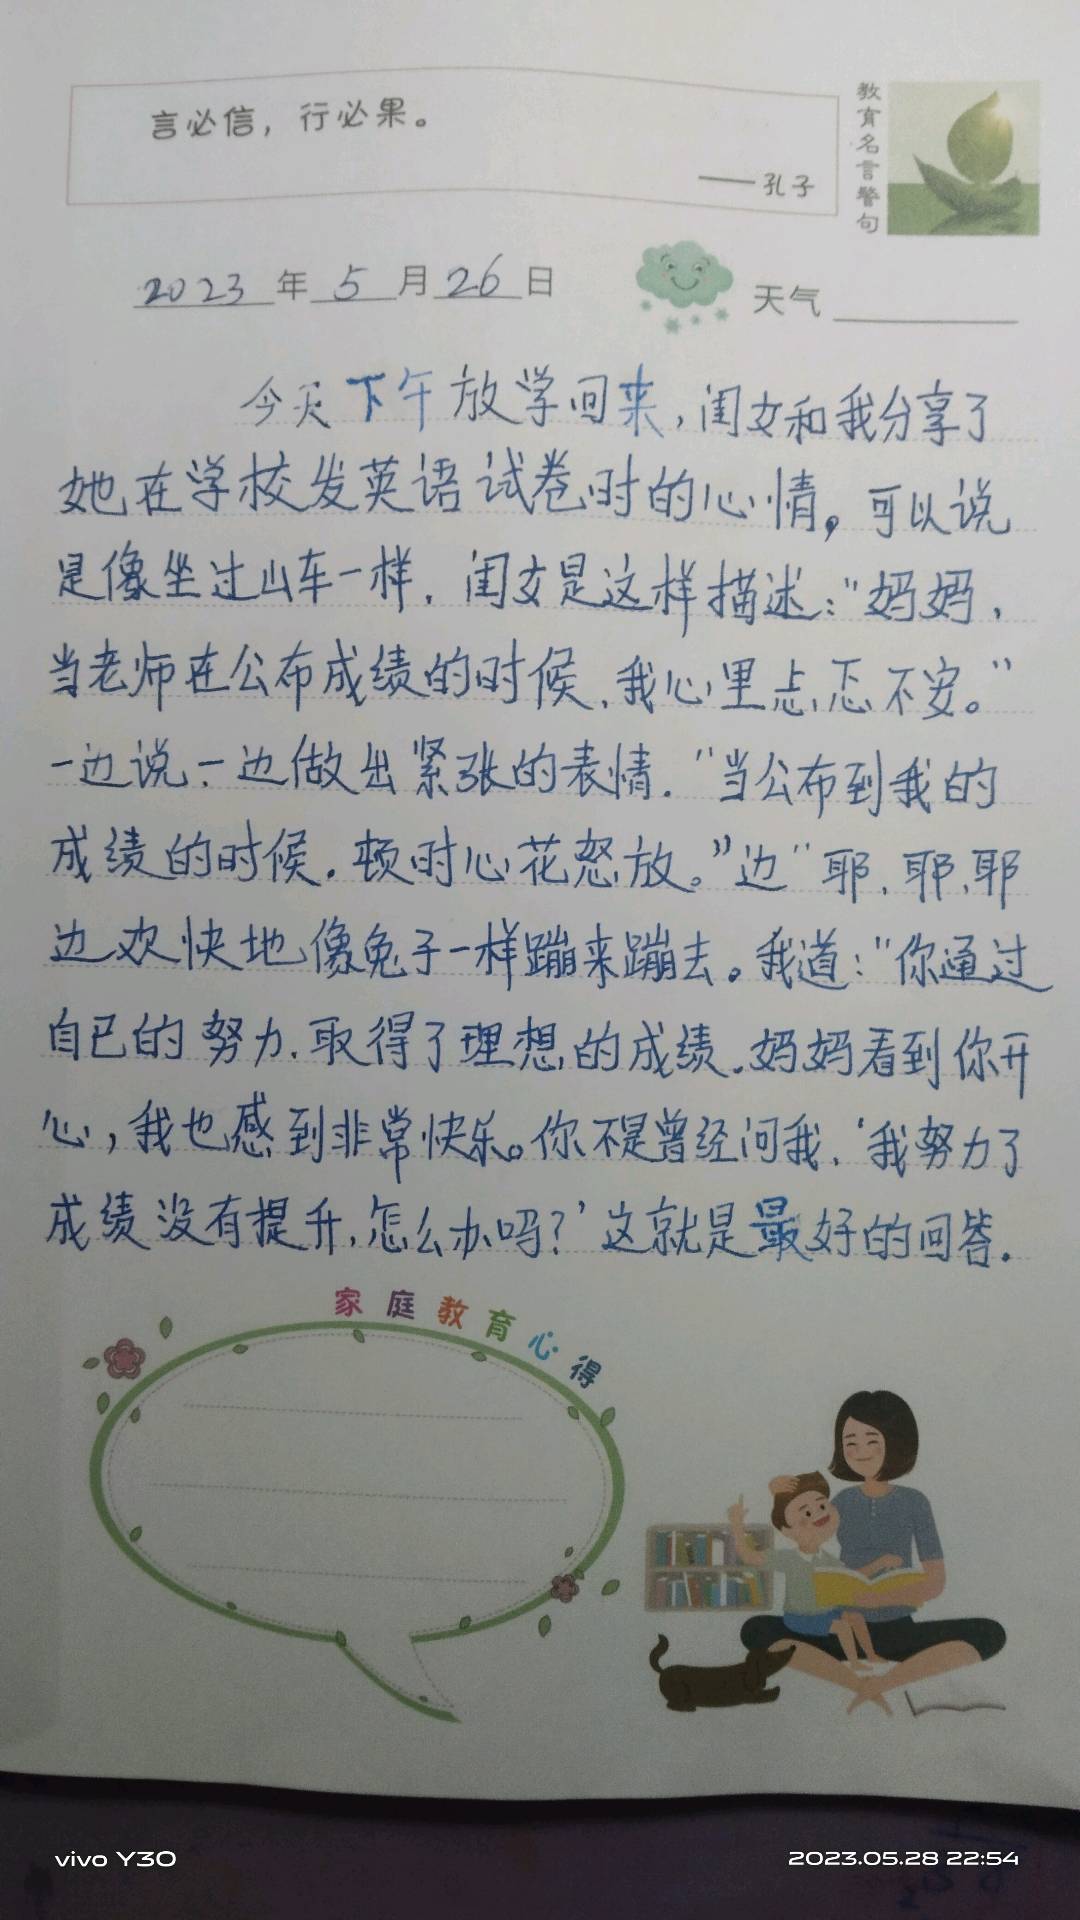 言必信，行必果。
——孔子
教育名言警句
2023年5月26日
天气
今天下午放学回来，闺女和我分享了
她在学校发英语试卷时的心情，可以说
是像坐过山车一样，闺女是这样描述："妈妈，
当老师在公布成绩的时候，我心里忐忑不安。"
一边说一边做出紧张的表情．"当公布到我的
成绩的时候．顿时心花怒放。"边"耶、耶、耶
边欢快地像兔子一样蹦来蹦去。我道："你通过
自己的努力，取得了理想的成绩．妈妈看到你开
心，我也感到非常快乐。你不是曾经问我，'我努力了
成绩没有提升，怎么办吗？'这就是最好的回答．
家庭教育心得
vivo Y30
2023.05.28 22:54